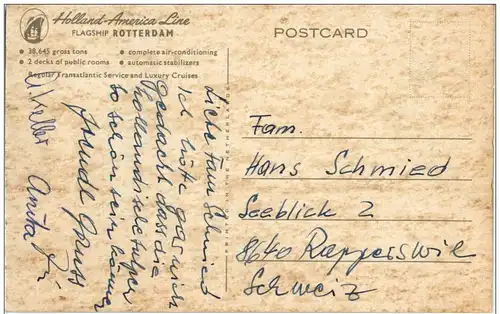 Holland-America Line
FLAGSHIP ROTTERDAM
• 38,645 gross tons • complete air-conditioning
• 2 decks of public rooms • automatic stabilizers
Regular Transatlantic Service and Luxury Cruises
POSTCARD
Liebe Fam Schmied
Ich hätte gar nicht
gedacht dass die
holländische
so schön sein
Freundl Gruss
Anita
Fam.
Hans Schmied
Seeblick 2
8640 Rapperswil
Schweiz